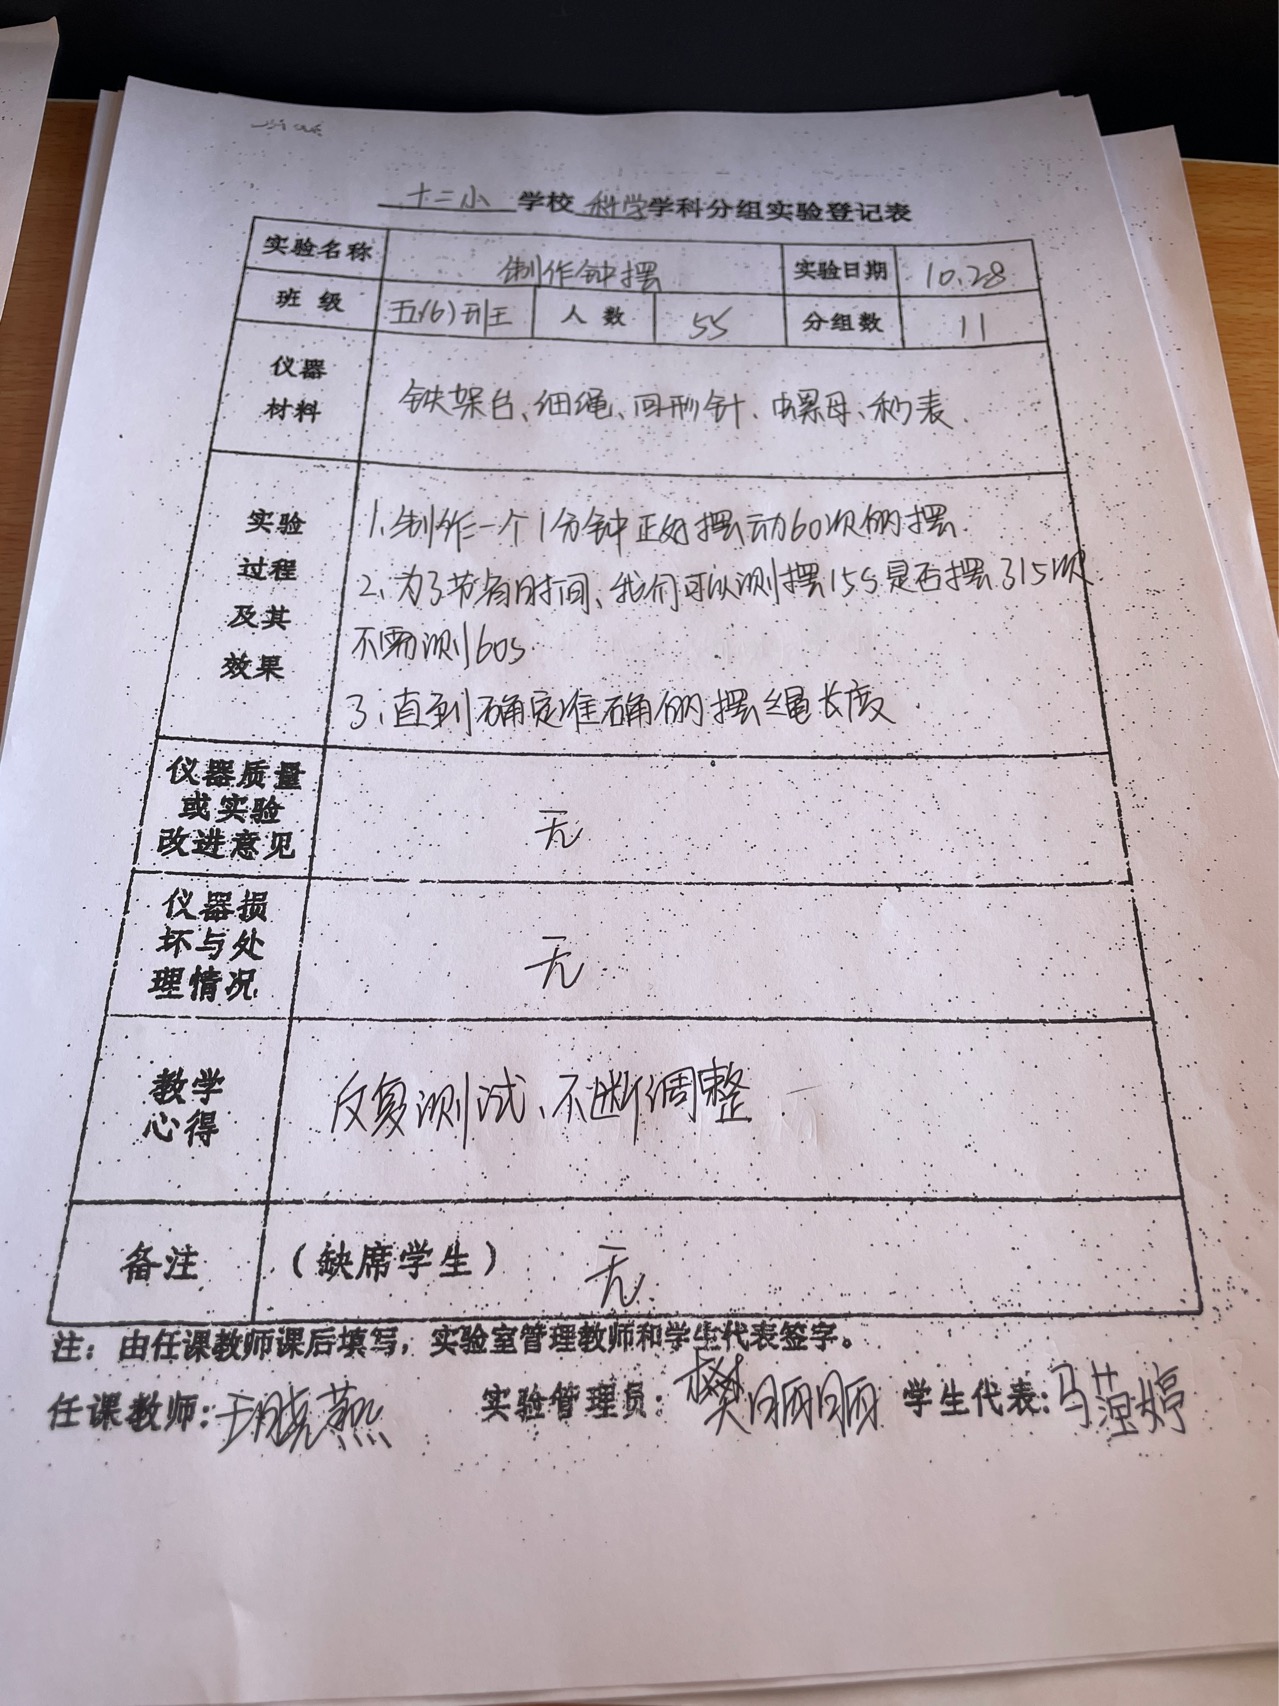 十二小 学校 科学 学科分组实验登记表
实验名称 制作钟摆 实验日期 10.28
班级 五(6)班 人数 55 分组数 11
仪器
材料
铁架台、细绳、回形针、螺母、秒表.
实验
过程
及其
效果
1、制作一个1分钟正好摆动60次的摆.
2、为了节省时间、我们可以测摆15s是否摆了15次
不需测60s.
3、直到确定准确的摆绳长度
仪器质量
或实验
改进意见
无
仪器损
坏与处
理情况
无
教学
心得
反复测试、不断调整
备注 (缺席学生) 无
注：由任课教师课后填写，实验室管理教师和学生代表签字。
任课教师: 王晓燕 实验管理员: 樊丽丽 学生代表: 马 婷